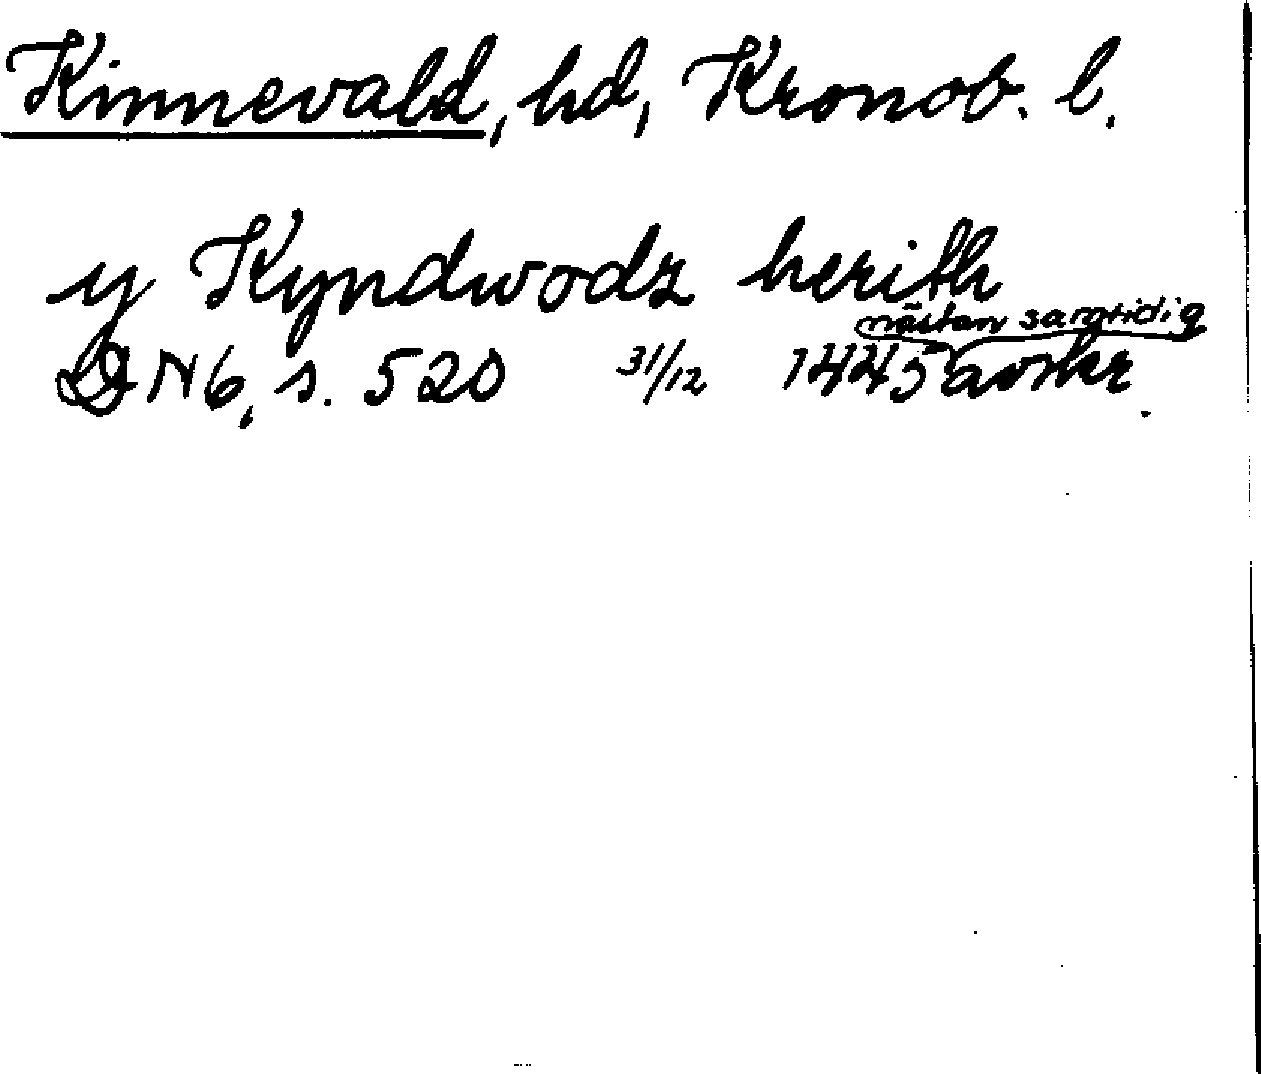 Kinnevald, hd, Kronob. l.
y Kyndwodz herith
DN 6, s. 520 31/12 1445 nästan samtidig avskr.